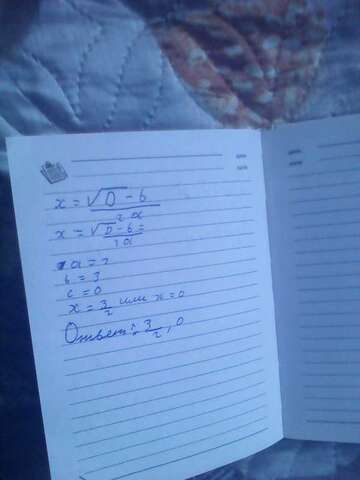 x = √D - b
2a
x = √D - b =
2a
a = 2
b = 3
c = 0
x = 3/2 или x = 0
Ответ: 3/2, 0